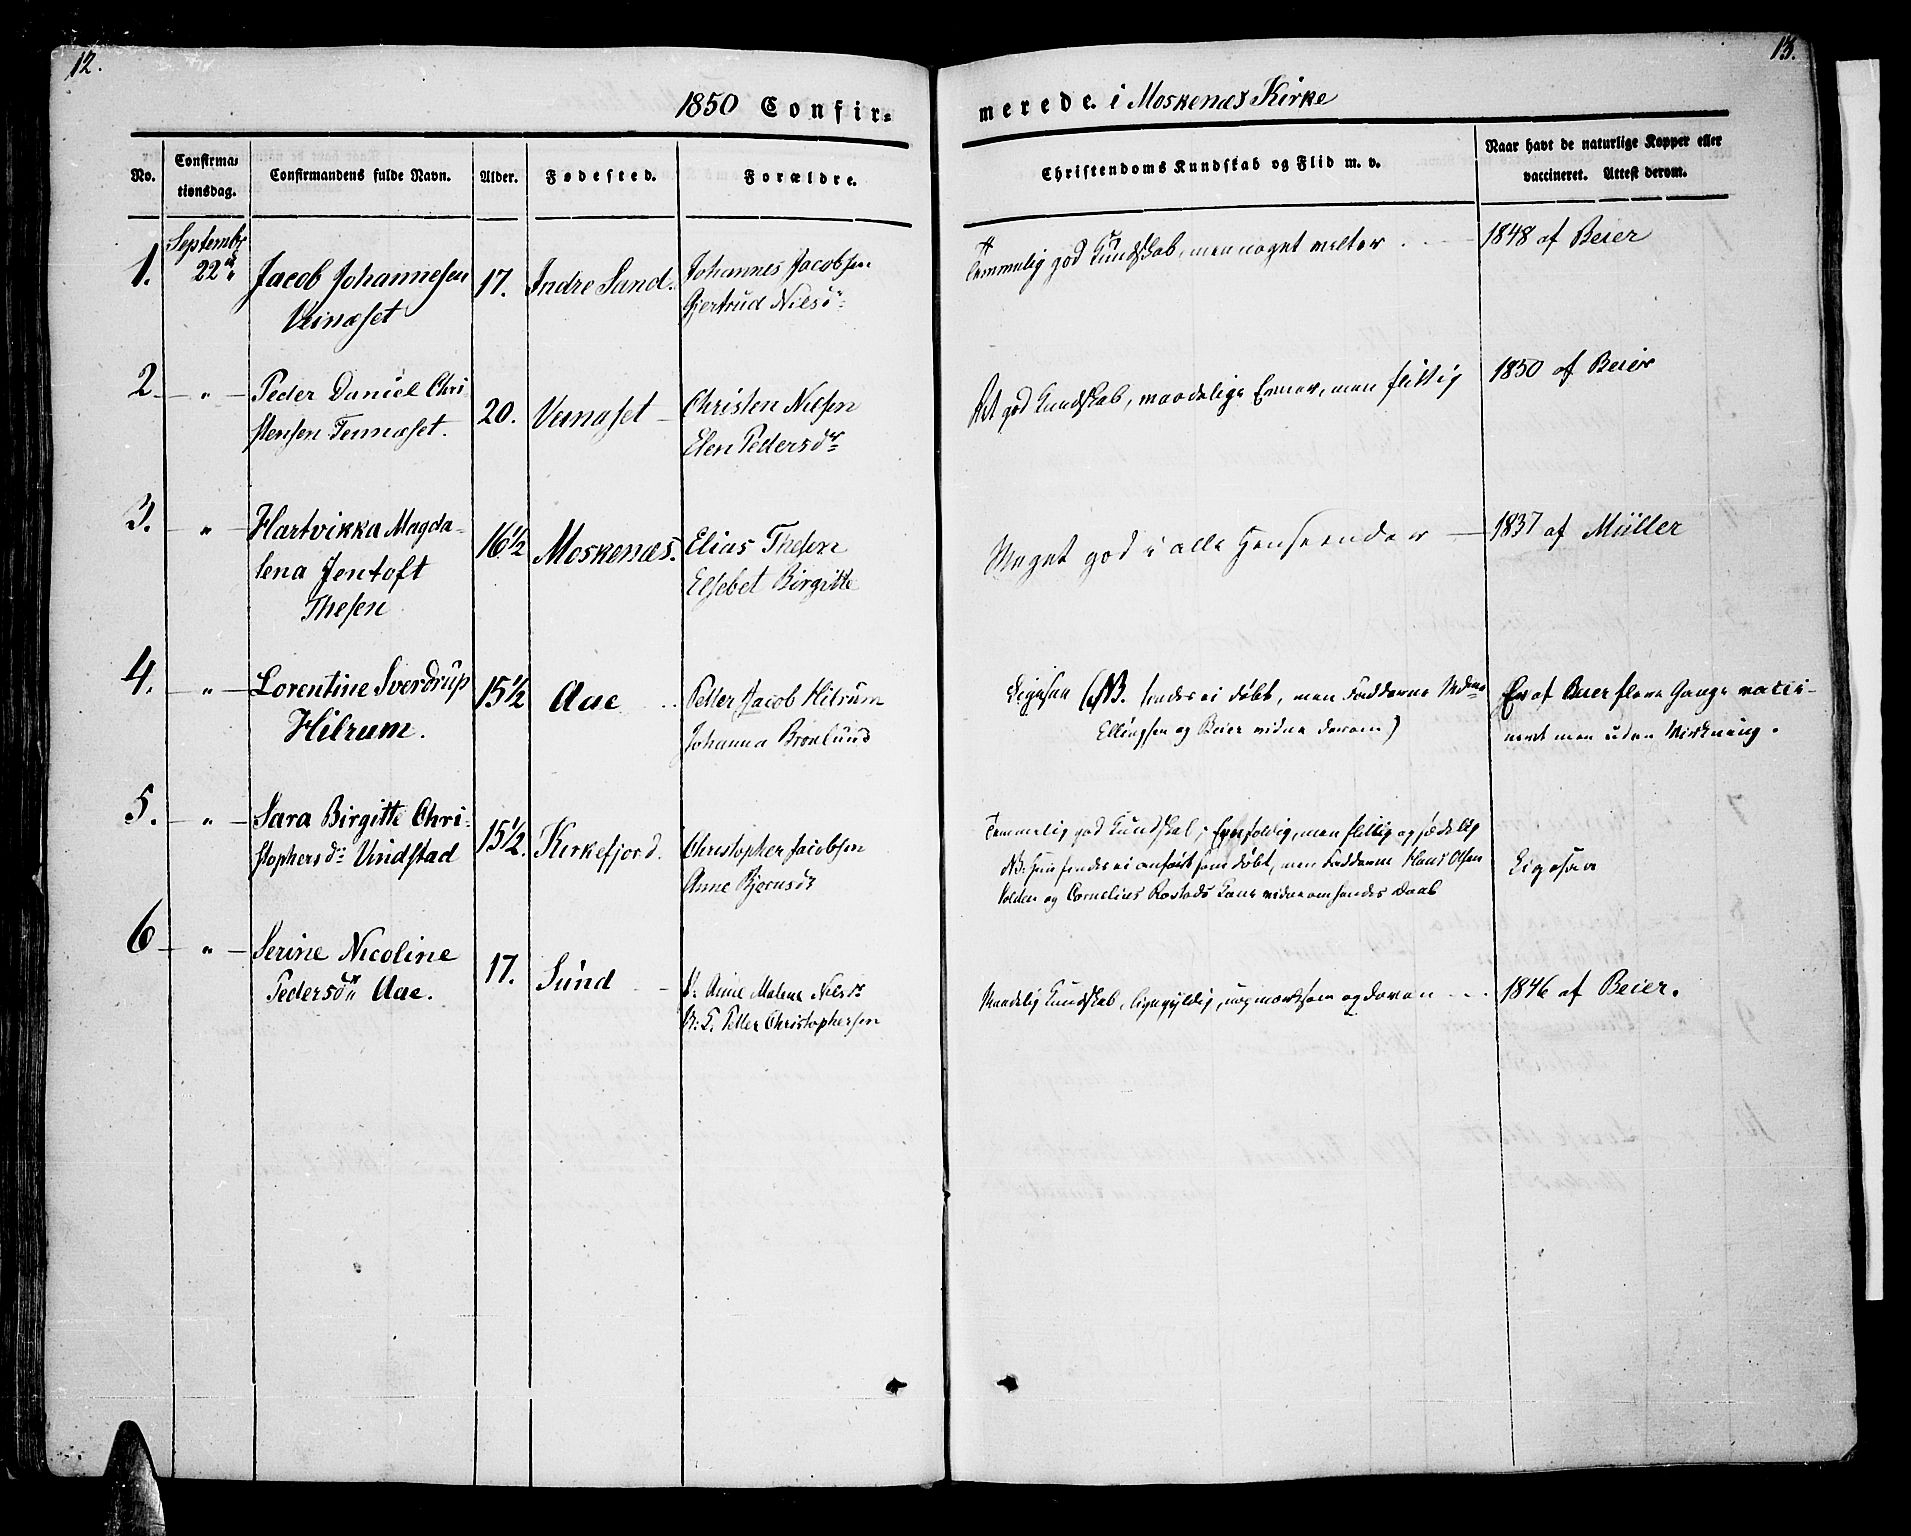 12.
13.
1850 Confir=
merede i Moskenæs Kirke
No.
Confirma=
tionsdag.
Confirmandens fulde Navn.
Alder.
Fødested.
Forældre.
Christendoms Kundskab og Flid m. v.
Naar havt de naturlige Kopper eller
vaccineret. Attest derom.
1.
Septembr
22
Jacob Johannesen
Veinæset
17.
Indre Sund.
Johannes Jacobsen
Gjertrud Nilsd
Temmelig god Kundskab, men noget
1848 af Beier
2 — " —
Peder Daniel Chri-
stensen Tennæset.
20.
Christen Nilsen
Elen Pedersdr
Ret god Kundskab, maadelige Evner, men flittig
1850 af Beier
3. — " —
Hartvikka Magda-
lena Jentoft
Thesen
16½
Moskenæs.
Elias Thesen
Elsebet Birgitte
Meget god i alle Henseender —
1837 af Müller
4. — " —
Lorentine Sverdrup
Hilrum.
15½
Aae
Petter Jacob Hilrum
Johanna Brønlund
Ligesaa (NB. findes ei døbt, men Fadderne
Ellingsen og Beier vidne derom)
Er af Beier flere Gange vacci-
neret men uden Virkning.
5. — " —
Sara Birgitte Chri-
stophersdr Vindstad
15½.
Kirkefjord.
Christopher Jacobsen
Anne Bjørnsdr
Temmelig god Kundskab, Eenfoldig, men flittig og sædelig
NB: Hun findes ei anført som døbt, men Fadderne Hans Olsen
Volden og Cornelius Rostads Kone vidne om hendes Daab
Ligesaa
6 — " —
Serine Nicoline
Pedersdr Aae.
17.
Sund —
P. Anne Malene Nilsdr
U: F. Petter Christophersen
Maadelig Kundskab, ligegyldig, uopmærksom og doven
1846 af Beier.